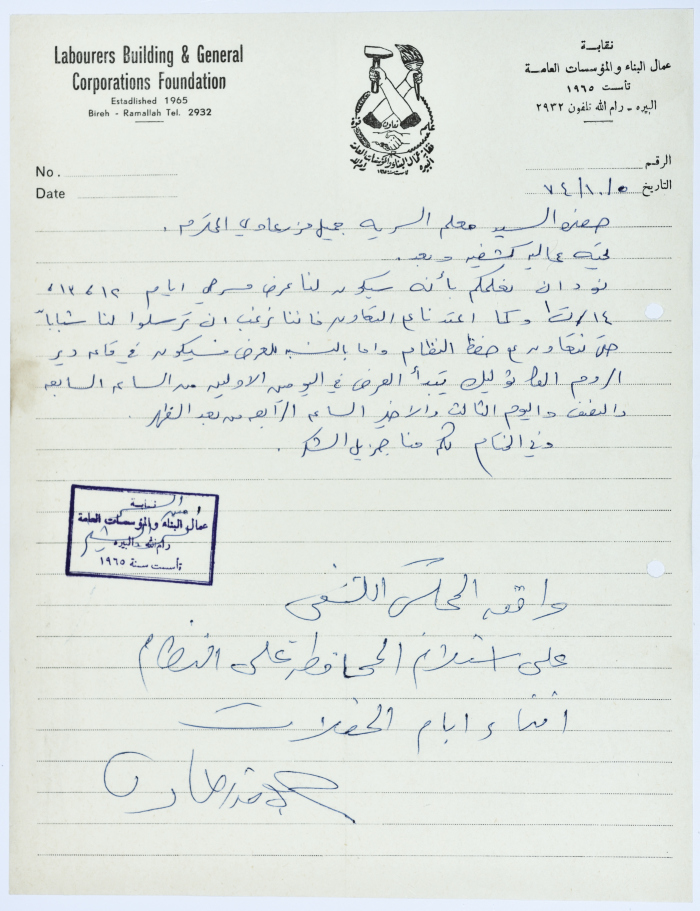 Labourers Building & General
Corporations Foundation
Estadlished 1965
Bireh - Ramallah Tel. 2932
نقابة
عمال البناء والمؤسسات العامة
تأست ١٩٦٥
البيره - رام الله تلفون ٢٩٣٢
تعاون
No.
Date
الرقم
التاريخ ٧٤/١٠/٥
حضرة السيد معلم السرية جميل المحترم .
تحية عمالية كشفية وبعد .
نود ان نعلمكم بأنه سيكون لنا عرض مسرحي ايام ١٢ ، ١٣ ،
١٤/ت١ وكما اعتدنا ع التعاون فاننا نرغب ان ترسلوا لنا شباباً
حتى نتعاون ع حفظ النظام واما بالنسبة للعرض فسيكون في قاعة دير
الروم الكاثوليك يبدأ العرض في اليومين الاولين من الساعة السابعة
والنصف واليوم الثالث والاخير الساعة الرابعة من بعد الظهر .
وفي الختام لكم منا جزيل الشكر .
نقابة
عمال البناء والمؤسسات العامة
رام الله والبيره
تأست سنة ١٩٦٥
وافق المجلس الكشفي
على استلام المحافظة على النظام
اثناء ايام الحفلات